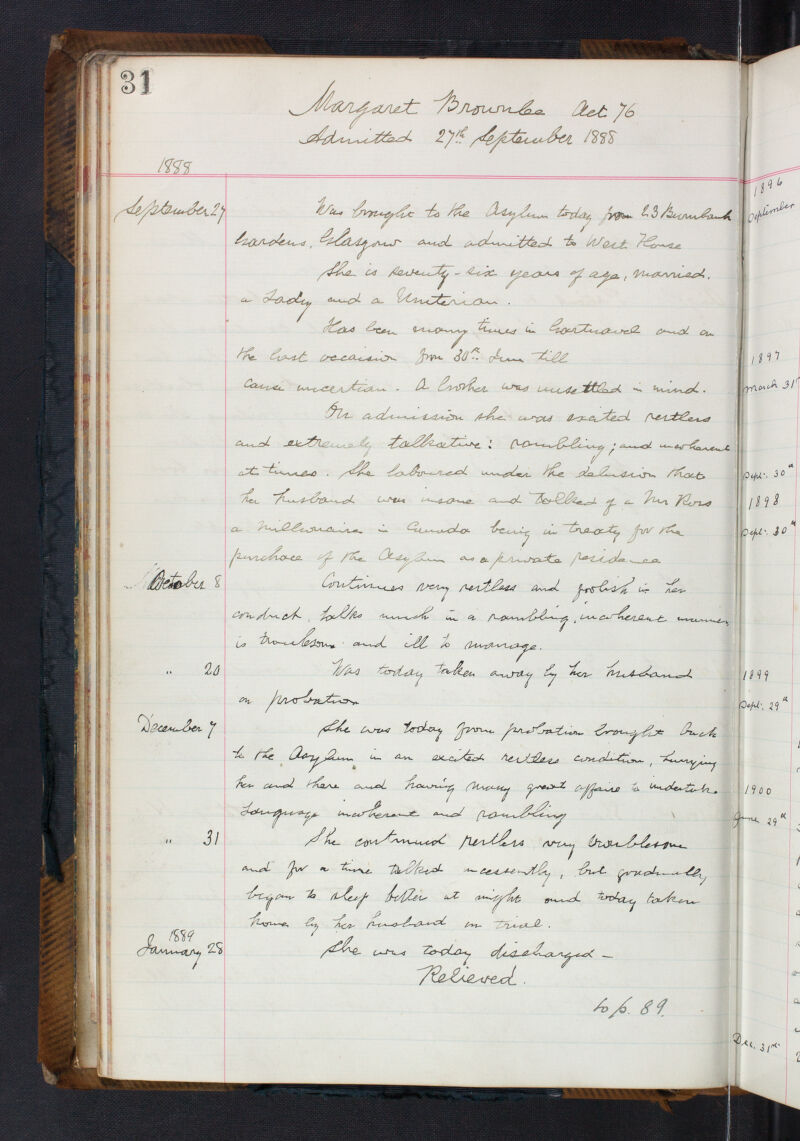 31
Margaret Brownlee Act 76
Admitted 27th September 1888
1888
September 27 Was brought to the Asylum today from 23 Burnbank
Gardens, Glasgow and admitted to West House
She is seventy-six years of age, married.
a Lady and a Uniterian.
Has been many times in Gartnavel and on
the last occaision from 30th June till
cause uncertian. A brother was unsettled in mind.
On admission she was exited restless
and extremely talkative: rambling; and incoherent
at times. She laboured under the delusion that
her husband was insane and talked of a Mr Ross
a Millionaire in Canada being in treaty for the
purchace of the Asylum as a private residence
October 8 Continues very restless and foolish in her
conduct, talks much in a rambling, incoherent manner
is troublesome and ill to manage.
" 20 Was today taken away by her husband
on probation
December 7 She was today from probation brought back
to the Asylum in an excited restless condition, hurrying
her and there and having many great affairs to undertake
Language incoherent and rambling
" 31 She continued restless, very troublesome
and for a time talked incessently, but gradually
began to sleep better at night and today taken
home by her husband on trial.
1889
January 28 She was today discharged -
Relieved.
to p. 89.
1896
September
1897
March 31st
Sept. 30th
1898
Sept. 30th
1899
Sept. 29th
1900
June 29th
Dec. 31st